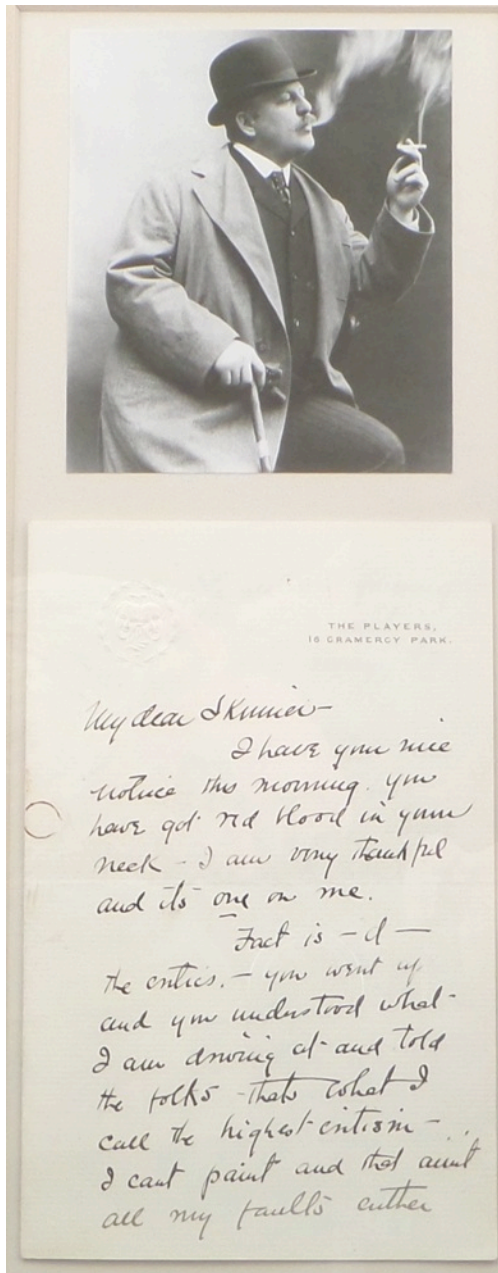 THE PLAYERS,
16 GRAMERCY PARK.
My dear Skinner –
I have your nice
notice this morning. you
have got red blood in your
neck – I am very thankful
and its one on me.
Fact is – d –
the critics. – you went up
and you understood what
I am driving at and told
the folks – thats what I
call the highest critism –
I cant paint and that aint
all my faults either